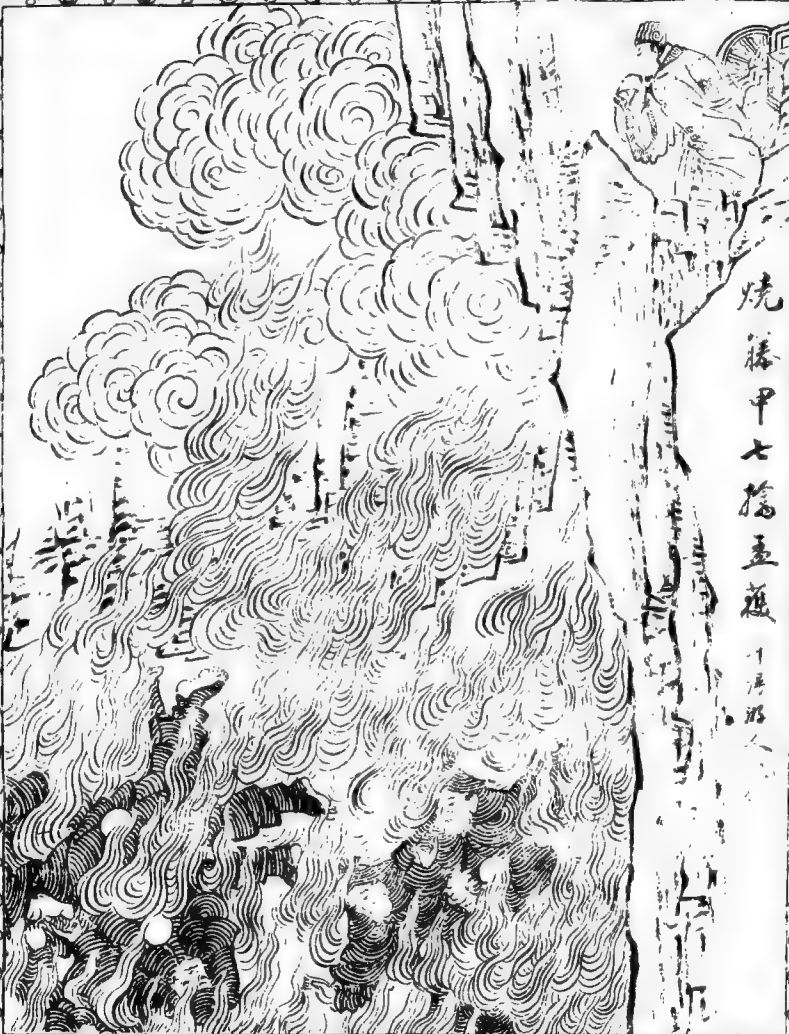 燒籐甲七擒孟獲